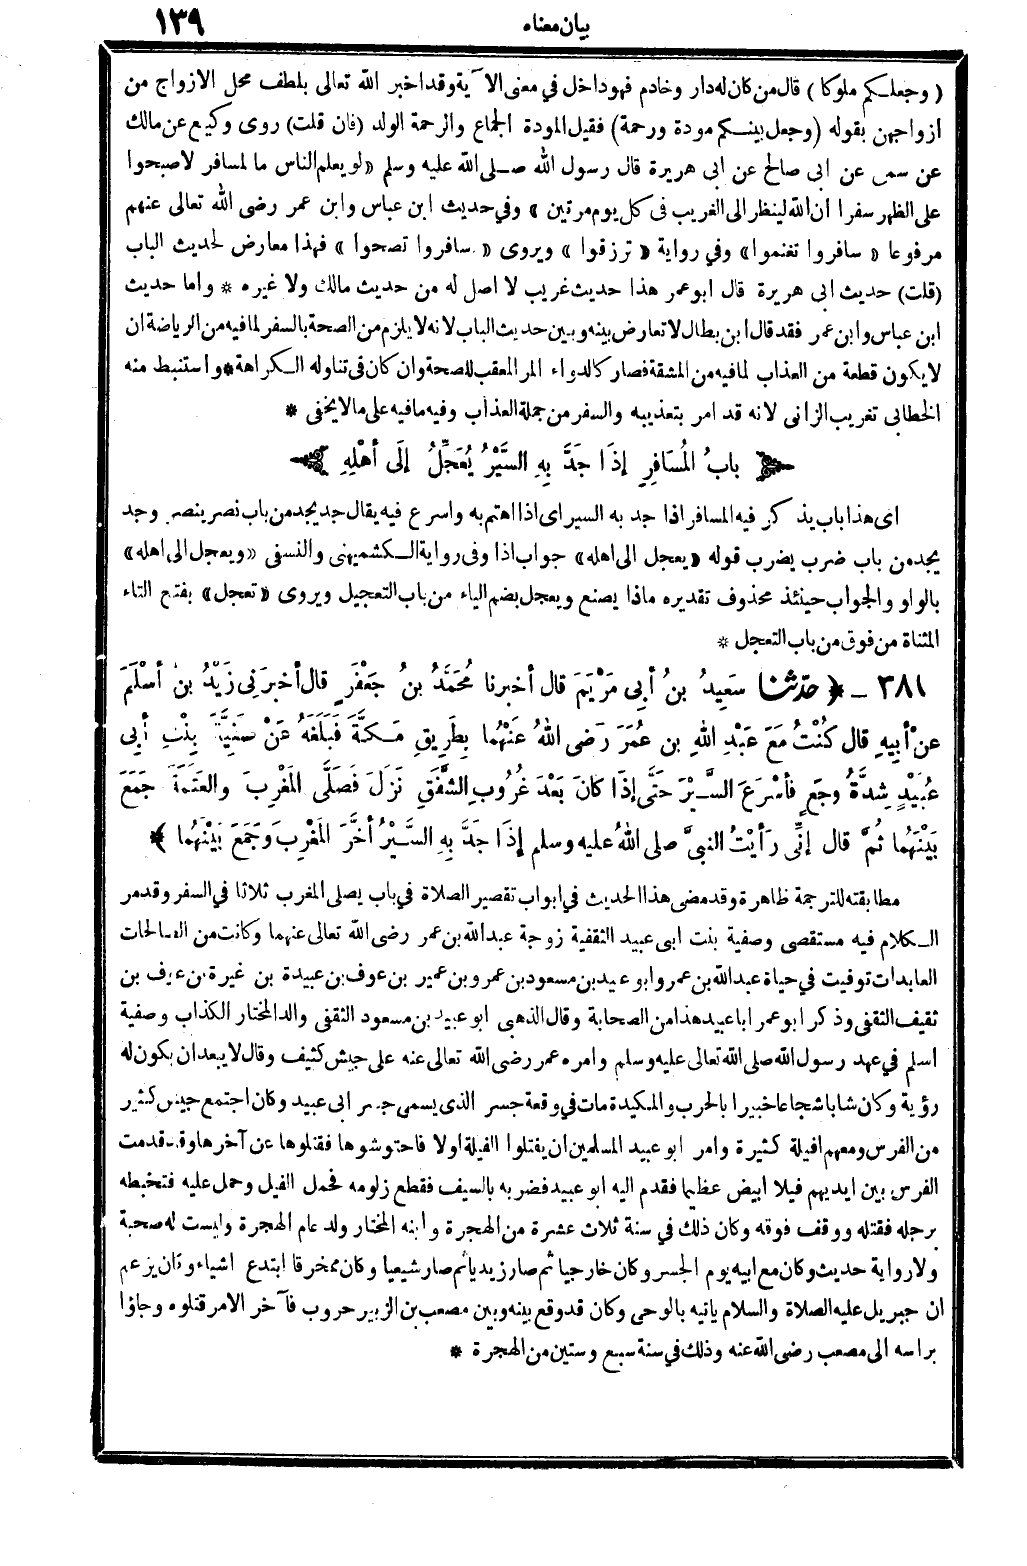 بيان معناه ١٣٩
(وجعلكم ملوكا) قال من كان له دار وخادم فهو داخل في معنى الآية وقد اخبر الله تعالى بلطف محل الازواج من
ازواجهن بقوله (وجعل بينكم مودة ورحمة) فقيل المودة الجماع والرحمة الولد (فان قلت) روى وكيع عن مالك
عن سمى عن ابى صالح عن ابى هريرة قال رسول الله صلى الله عليه وسلم «لو يعلم الناس ما للمسافر لاصبحوا
على الظهر سفرا ان الله لينظر الى الغريب فى كل يوم مرتين» وفي حديث ابن عباس وابن عمر رضى الله تعالى عنهم
مرفوعا «سافروا تغنموا» وفي رواية «ترزقوا» ويروى «سافروا تصحوا» فهذا معارض لحديث الباب
(قلت) حديث ابى هريرة قال ابو عمر هذا حديث غريب لا اصل له من حديث مالك ولا غيره * واما حديث
ابن عباس وابن عمر فقد قال ابن بطال لا تعارض بينه وبين حديث الباب لانه لا يلزم من الصحة بالسفر لما فيه من الرياضة ان
لا يكون قطعة من العذاب لما فيه من المشقة فصار كالدواء المر المعقب للصحة وان كان فى تناوله الكراهة * واستنبط منه
الخطابى تغريب الزانى لانه قد امر بتعذيبه والسفر من جملة العذاب وفيه ما فيه على ما لا يخفى *
بابُ المُسَافِرِ إذَا جَدَّ بِهِ السَّيْرُ يُعَجِّلُ إلَى أهْلِهِ
اى هذا باب يذكر فيه المسافر اذا جد به السير اى اذا اهتم به واسرع فيه يقال جد يجد من باب نصر ينصر وجد
يجد من باب ضرب يضرب قوله «يعجل الى اهله» جواب اذا وفى رواية الكشميهنى والنسفى «ويعجل الى اهله»
بالواو والجواب حينئذ محذوف تقديره ماذا يصنع ويعجل بضم الياء من باب التعجيل ويروى «تعجل» بفتح التاء
المثناة من فوق من باب التعجل *
٣٨١ - ﴿حدثنا سَعِيدُ بنُ أبِى مَرْيَمَ قال أخبرنا مُحَمَّدُ بنُ جَعْفَرٍ قال أخبرَنِى زَيْدُ بنُ أسْلَمَ
عنْ أبِيهِ قال كُنْتُ مَعَ عَبْدِ اللهِ بنِ عُمَرَ رَضى اللهُ عَنْهُما بِطَرِيقِ مَكَّةَ فَبَلَغَهُ عَنْ صَفِيَّةَ بِنْتِ أبِى
عُبَيْدٍ شِدَّةُ وجَعٍ فأسْرَعَ السَّيْرَ حَتَّى إذَا كانَ بَعْدَ غُرُوبِ الشَّفَقِ نَزَلَ فَصَلَّى المَغْرِبَ والعَتَمَةَ جَمَعَ
بَيْنَهُما ثُمَّ قال إنِّى رَأيْتُ النبىَّ صلى اللهُ عليه وسلم إذَا جَدَّ بِهِ السَّيْرُ أخَّرَ المَغْرِبَ وجَمَعَ بَيْنَهُما﴾
مطابقته للترجمة ظاهرة وقد مضى هذا الحديث في ابواب تقصير الصلاة في باب يصلى المغرب ثلاثا في السفر وقد مر
الكلام فيه مستقصى وصفية بنت ابى عبيد الثقفية زوجة عبد الله بن عمر رضى الله تعالى عنهما وكانت من الصالحات
العابدات توفيت في حياة عبد الله بن عمر وابو عبيد بن مسعود بن عمرو بن عمير بن عوف بن عبيدة بن غيرة بن عوف بن
ثقيف الثقفى وذكر ابو عمر ابا عبيد هذا من الصحابة وقال الذهبى ابو عبيد بن مسعود الثقفى والد المختار الكذاب وصفية
اسلم في عهد رسول الله صلى الله تعالى عليه وسلم وامره عمر رضى الله تعالى عنه على جيش كثيف وقال لا يبعد ان يكون له
رؤية وكان شابا شجاعا خبيرا بالحرب والمكيدة مات في وقعة جسر الذى يسمى جسر ابى عبيد وكان اجتمع جيش كثير
من الفرس ومعهم افيلة كثيرة وامر ابو عبيد المسلمين ان يقتلوا الفيلة اولا فاحتوشوها فقتلوها عن آخرها وقد قدمت
الفرس بين ايديهم فيلا ابيض عظيما فقدم اليه ابو عبيد فضربه بالسيف فقطع زلومه فحمل الفيل وحمل عليه فتخبطه
برجله فقتله ووقف فوقه وكان ذلك في سنة ثلاث عشرة من الهجرة وابنه المختار ولد عام الهجرة وليست له صحبة
ولا رواية حديث وكان مع ابيه يوم الجسر وكان خارجيا ثم صار زيديا ثم صار شيعيا وكان ممخرقا ابتدع اشياء وكان يزعم
ان جبريل عليه الصلاة والسلام ياتيه بالوحى وكان قد وقع بينه وبين مصعب بن الزبير حروب فآخر الامر قتلوه وجاؤا
براسه الى مصعب رضى الله عنه وذلك في سنة سبع وستين من الهجرة *